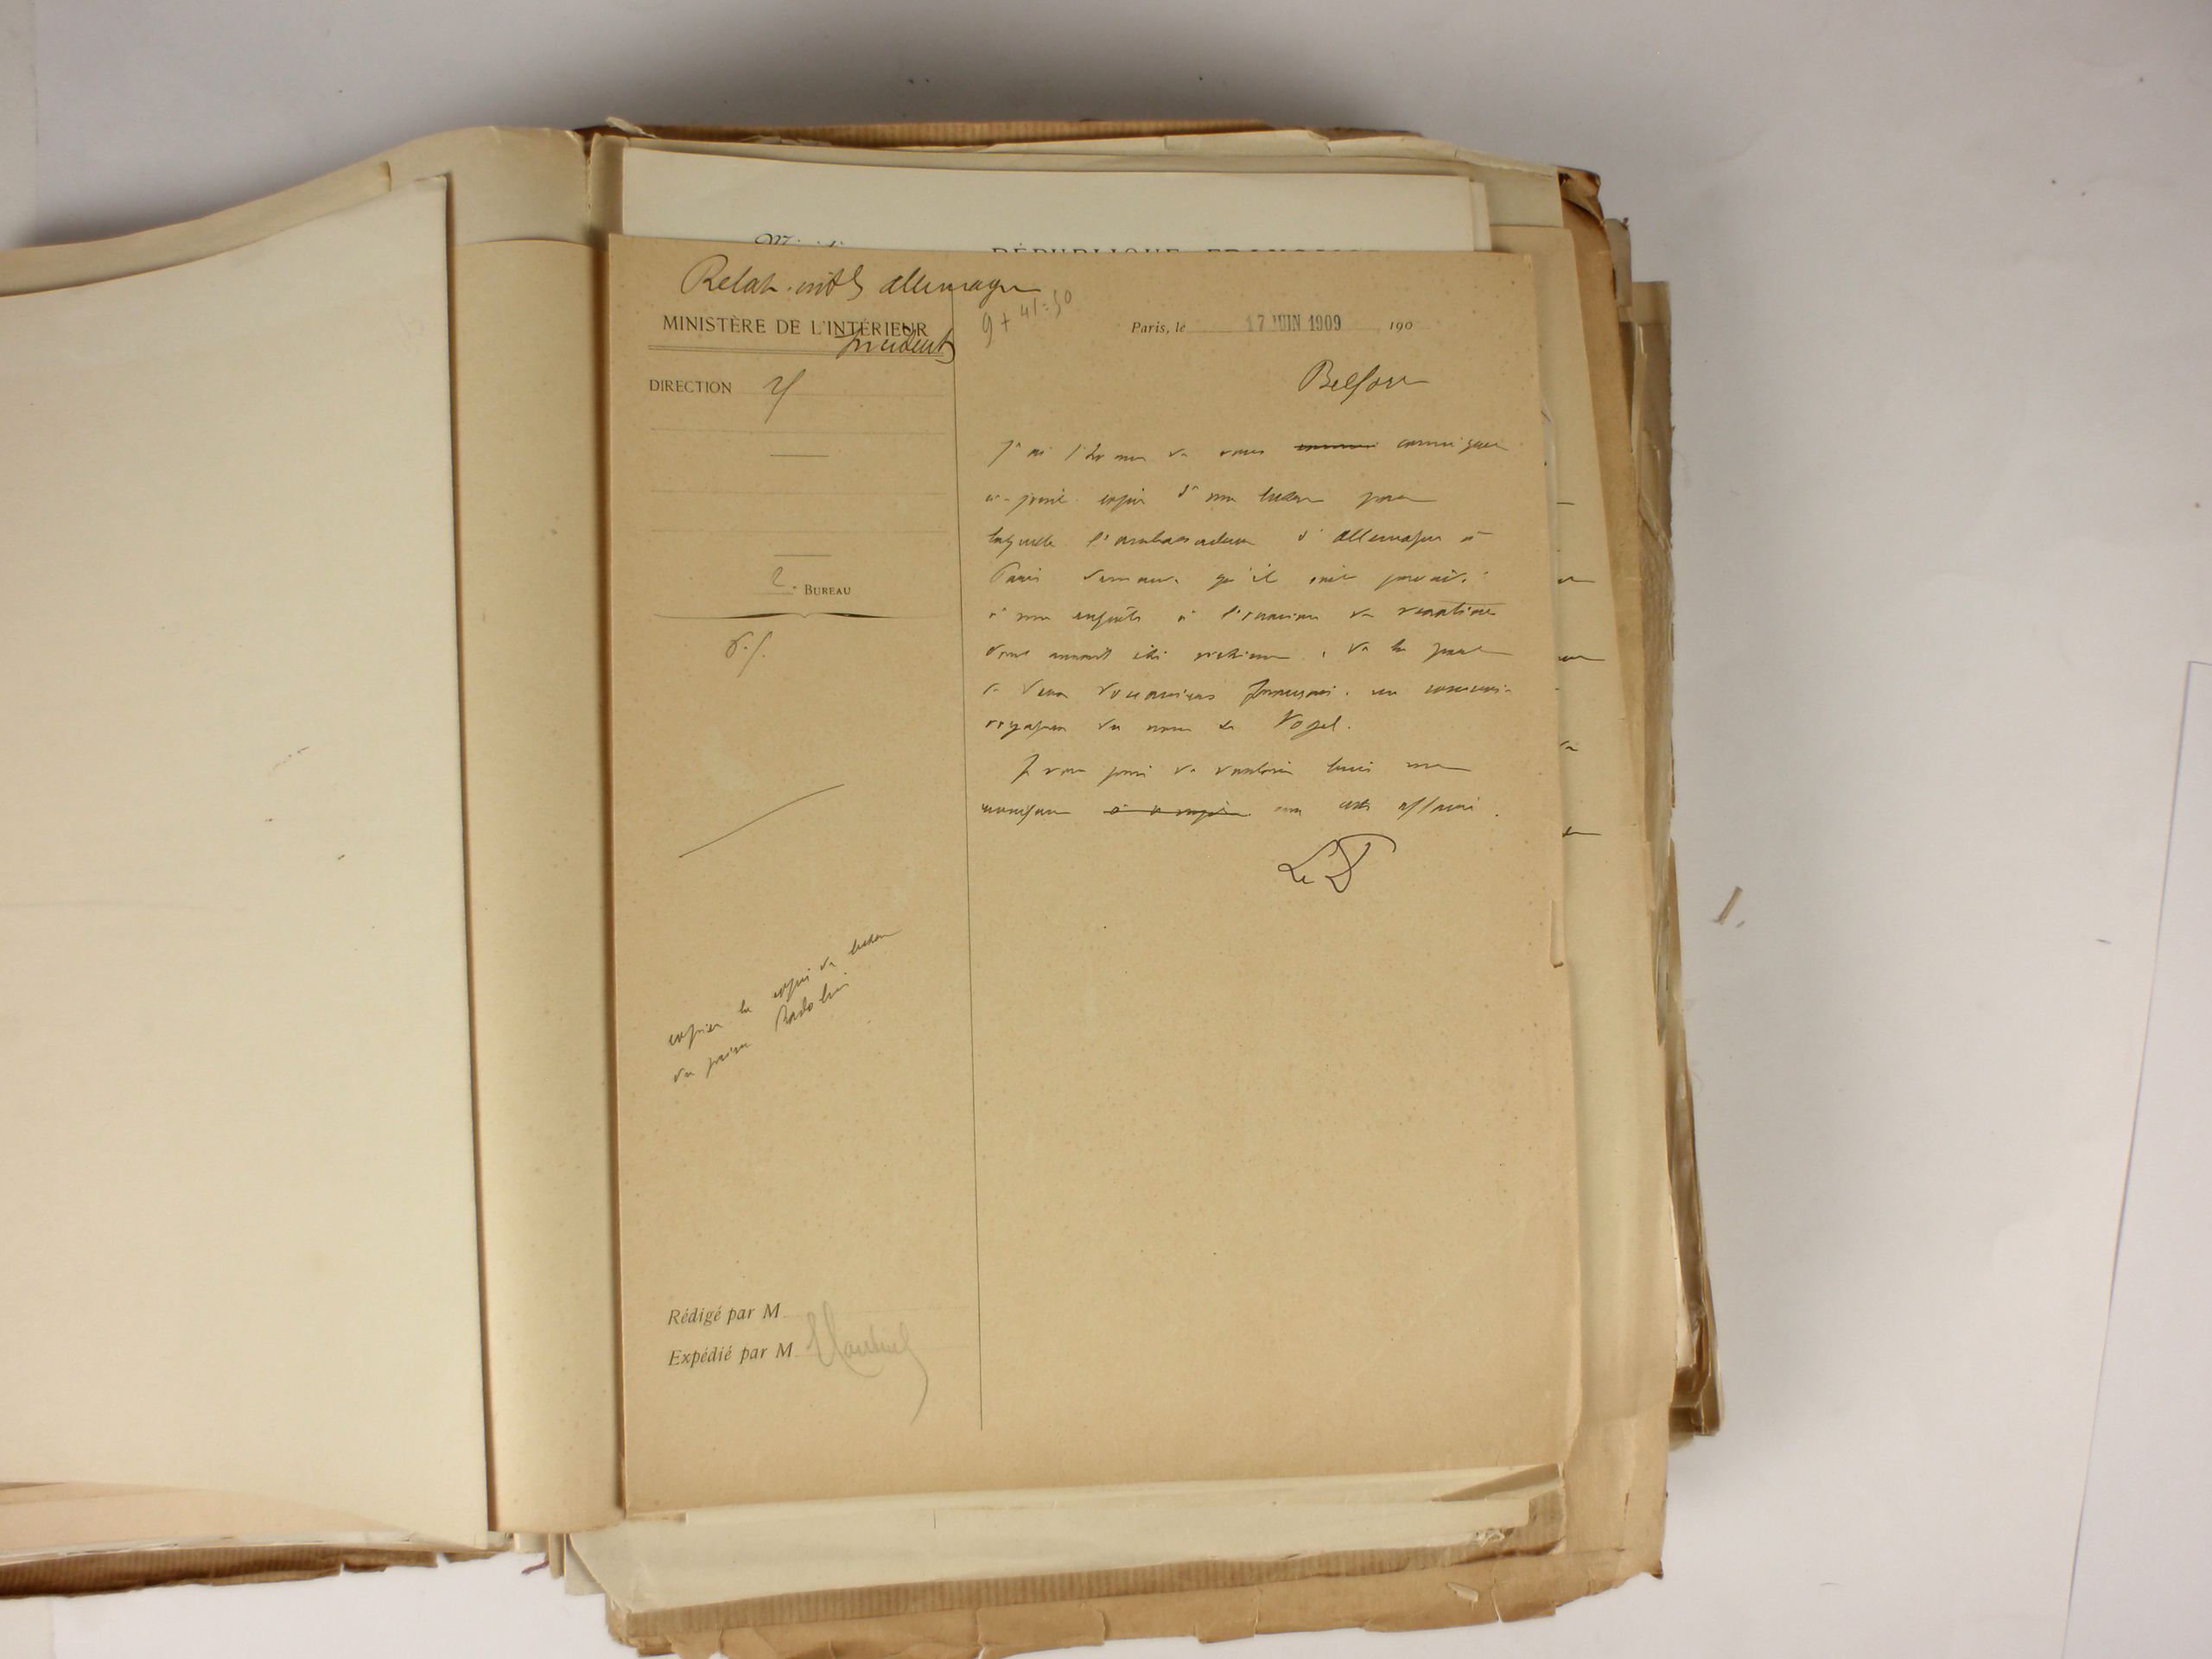 RÉPUBLIQUE FRANÇAISE
Relat. intles allemagne
incidents
MINISTÈRE DE L'INTÉRIEUR
9 + 41 = 50
Paris, le 17 JUIN 1909 190
DIRECTION
Belfort
2e BUREAU
J'ai l'honneur de vous communiquer
ci-joint copie d'une lettre par
laquelle l'ambassadeur d'Allemagne à
Paris demande qu'il soit procédé
à une enquête à l'occasion de vexations
dont aurait été victime, de la part
de deux douaniers français, un commis-
voyageur du nom de Vogel.
Je vous prie de vouloir bien me
renseigner sur cette affaire.
Le D
copier la copie de lettre
du prince Radolin
Rédigé par M
Expédié par M